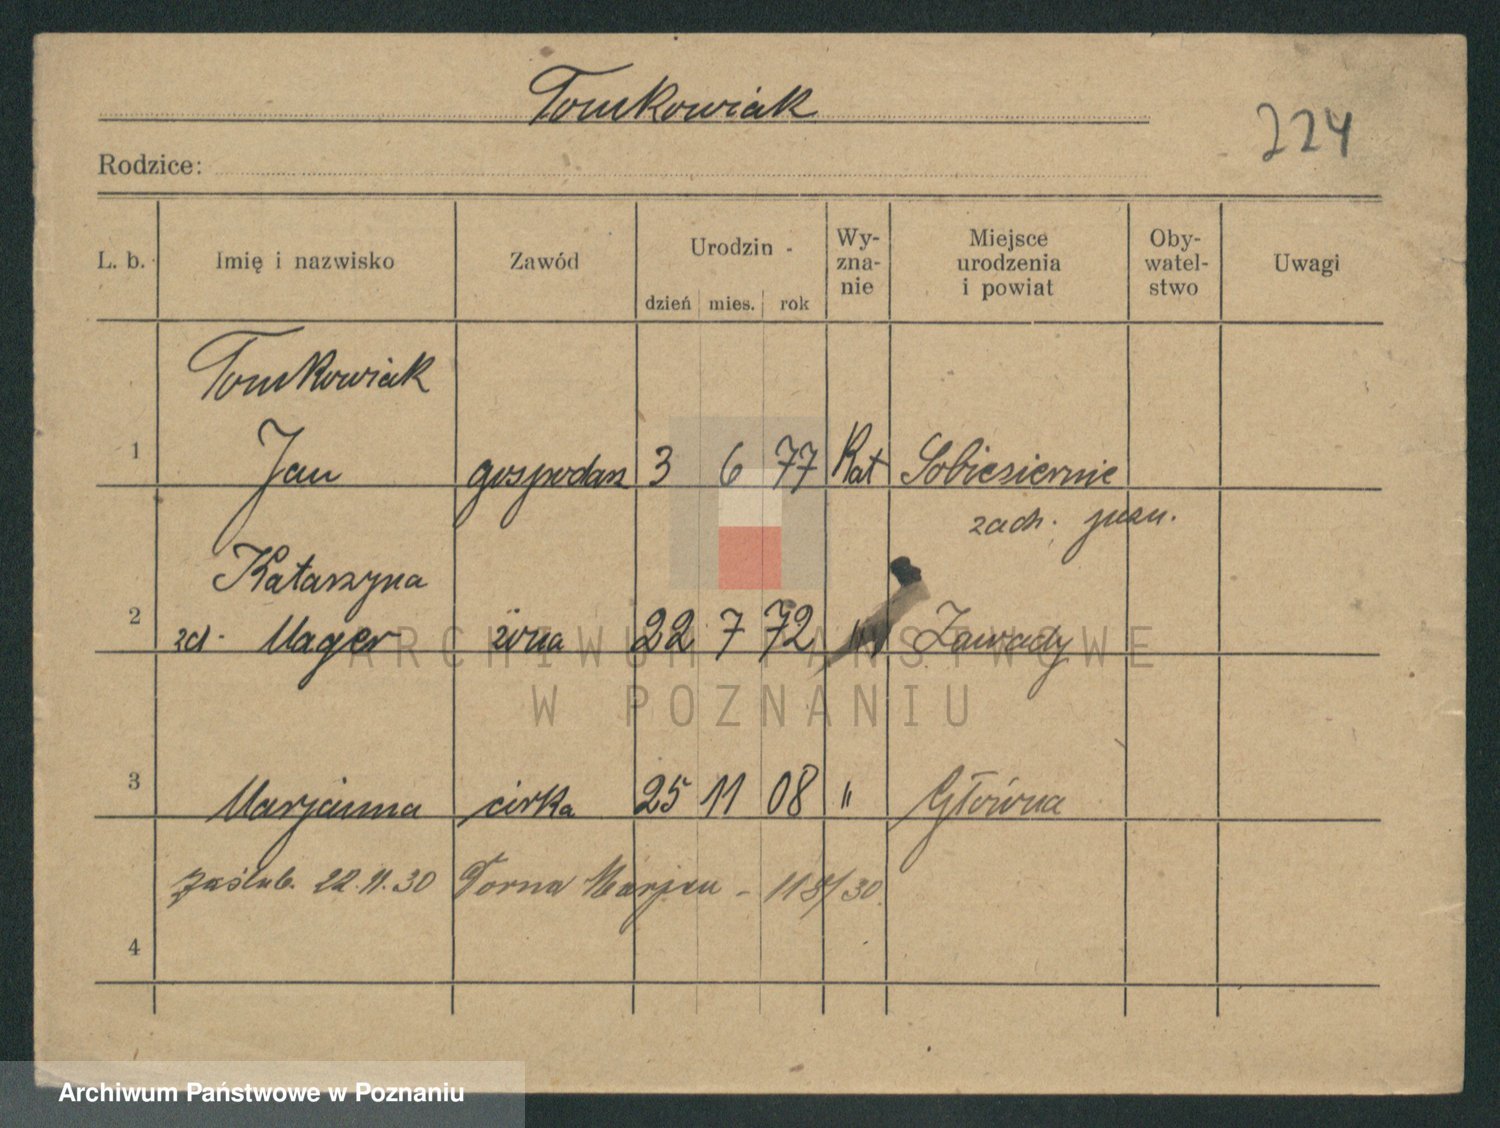 Tomkowiak
224
Rodzice:
L. b. Imię i nazwisko Zawód Urodzin - dzień mies. rok Wy-zna-nie Miejsce urodzenia i powiat Oby-watel-stwo Uwagi
Tomkowiak
1 Jan gospodarz 3 6 77 Kat Sobiesiernie
zach. pozn.
Katarzyna
2 zd. Mager żona 22 7 72 " Zawady
3 Marjanna córka 25 11 08 " Główna
zaślub. 22.11.30 Torna Marjan - 118/30.
4
ARCHIWUM PAŃSTWOWE
W POZNANIU
Archiwum Państwowe w Poznaniu